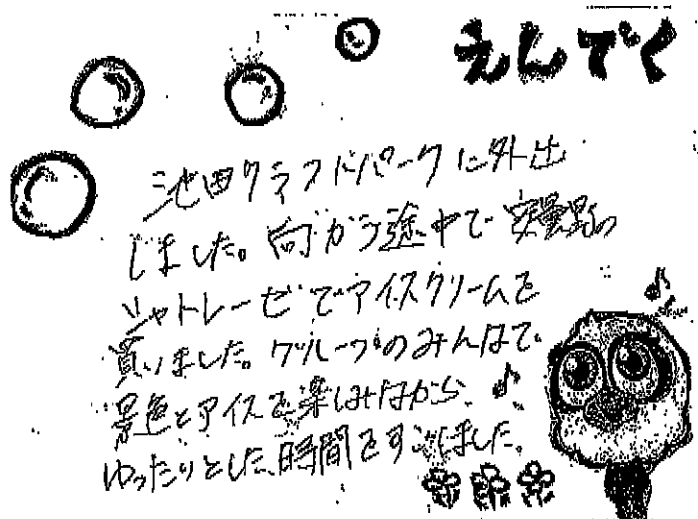 えんでく
池田クラフトパークに外出
しました。向かう途中で
シャトレーゼでアイスクリームを
買いました。グループのみんなで
景色とアイスを楽しみながら、
ゆったりとした時間をすごしました。